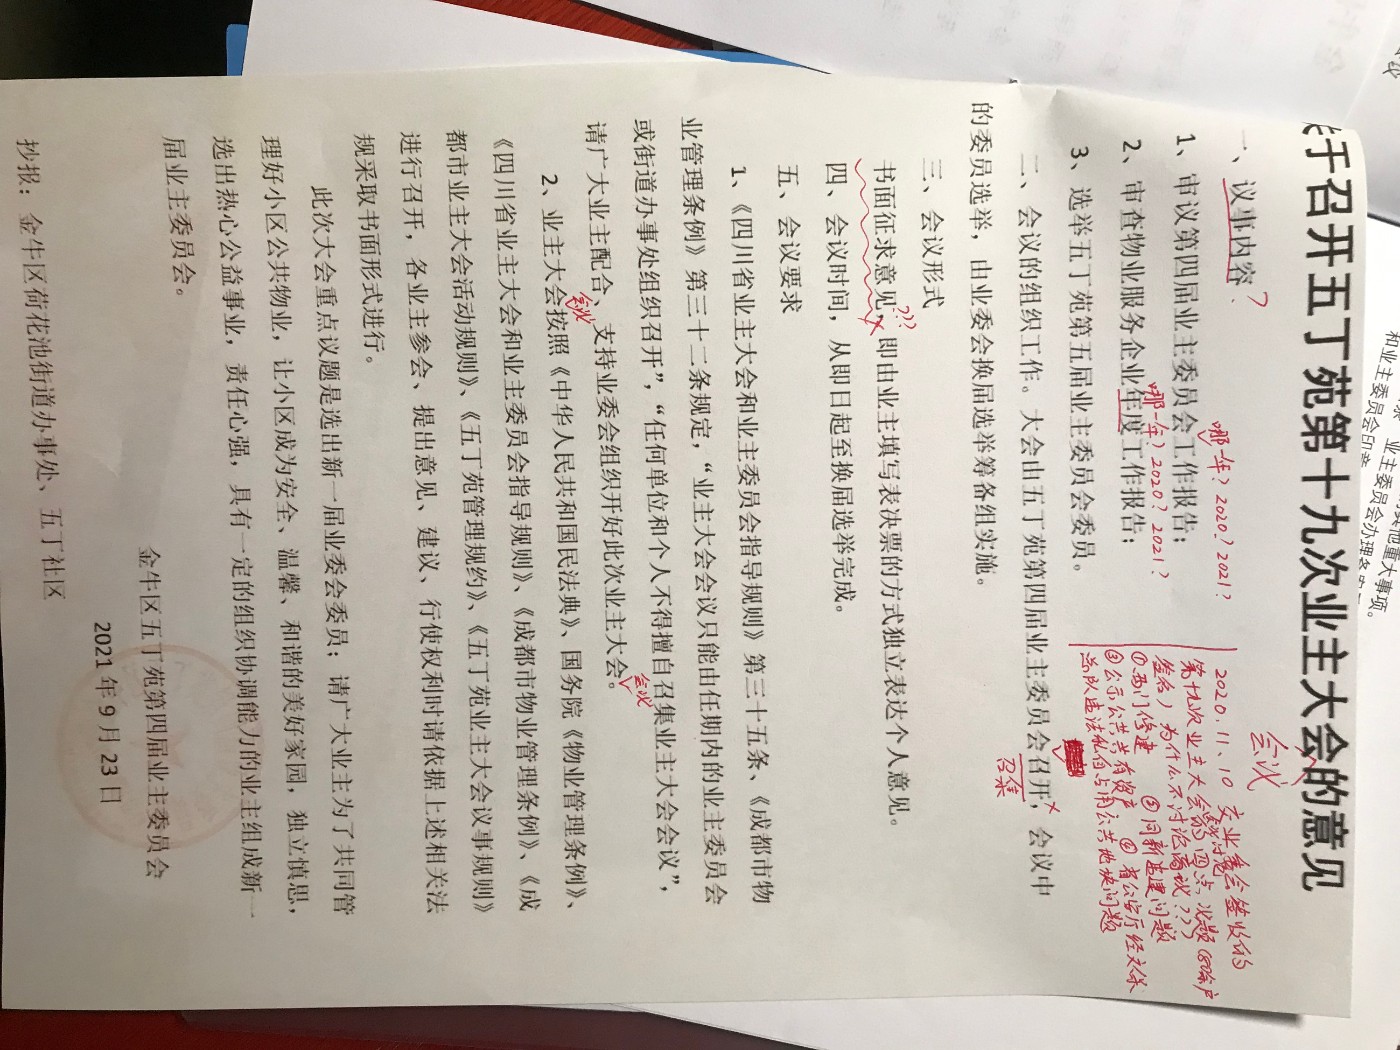 关于召开五丁苑第十九次业主大会的意见
会议
一、议事内容：
?
1、审议第四届业主委员会工作报告；
哪一年？2020？2021？
2、审查物业服务企业年度工作报告；
哪一年？2020？2021？
3、选举五丁苑第五届业主委员会委员。
2020.11.10 交业委会签收的
第十九次业主大会的四点议题
签名，为什么不讨论商议???
①西门修建 ②同新违建问题
③公示公共共有资产 ④省公安厅经文保
总队违法私自占用公共地块问题
二、会议的组织工作。大会由五丁苑第四届业主委员会召开，会议中
召集
的委员选举，由业委会换届选举筹备组实施。
三、会议形式
书面征求意见，即由业主填写表决票的方式独立表达个人意见。
???
四、会议时间，从即日起至换届选举完成。
五、会议要求
1、《四川省业主大会和业主委员会指导规则》第三十五条、《成都市物
业管理条例》第三十二条规定，“业主大会会议只能由任期内的业主委员会
或街道办事处组织召开”，“任何单位和个人不得擅自召集业主大会会议”，
请广大业主配合，支持业委会组织开好此次业主大会。
会议
2、业主大会按照《中华人民共和国民法典》、国务院《物业管理条例》、
会议
《四川省业主大会和业主委员会指导规则》、《成都市物业管理条例》、《成
都市业主大会活动规则》、《五丁苑管理规约》、《五丁苑业主大会议事规则》
进行召开，各业主参会、提出意见、建议、行使权利时请依据上述相关法
规采取书面形式进行。
此次大会重点议题是选出新一届业委会委员；请广大业主为了共同管
理好小区公共物业，让小区成为安全、温馨、和谐的美好家园，独立慎思，
选出热心公益事业，责任心强，具有一定的组织协调能力的业主组成新一
届业主委员会。
金牛区五丁苑第四届业主委员会
2021 年 9 月 23 日
抄报：金牛区荷花池街道办事处、五丁社区
他重大事项。
业主委员会办理
和业主委员会印章